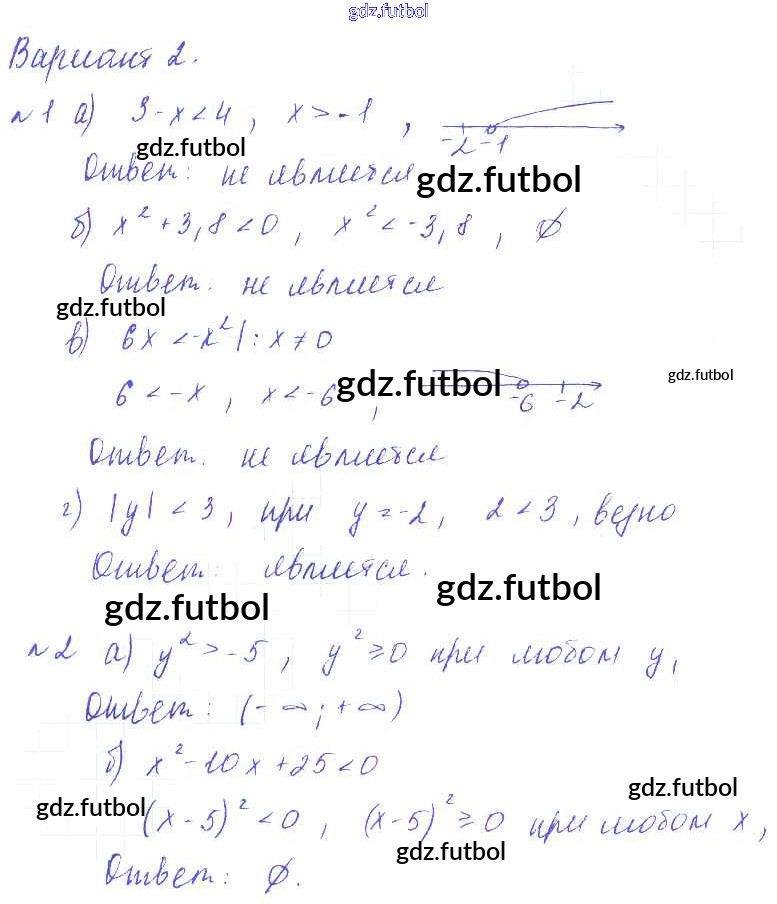 gdz.futbol
Вариант 2.
№1 а) 3-x<4, x>-1,
-2 -1
gdz.futbol
Ответ: не является
gdz.futbol
б) x²+3,8<0, x²<-3,8, ∅
Ответ: не является
gdz.futbol
в) 6x<-x² |: x≠0
gdz.futbol
6<-x, x<-6,
gdz.futbol
-6 -2
Ответ. не является
г) |y|<3, при y=-2, 2<3, верно
Ответ: является.
gdz.futbol
gdz.futbol
№2 а) y²>-5, y²≥0 при любом y,
Ответ: (-∞;+∞)
б) x²-10x+25<0
gdz.futbol
gdz.futbol
(x-5)²<0, (x-5)²≥0 при любом x,
gdz.futbol
Ответ: ∅.